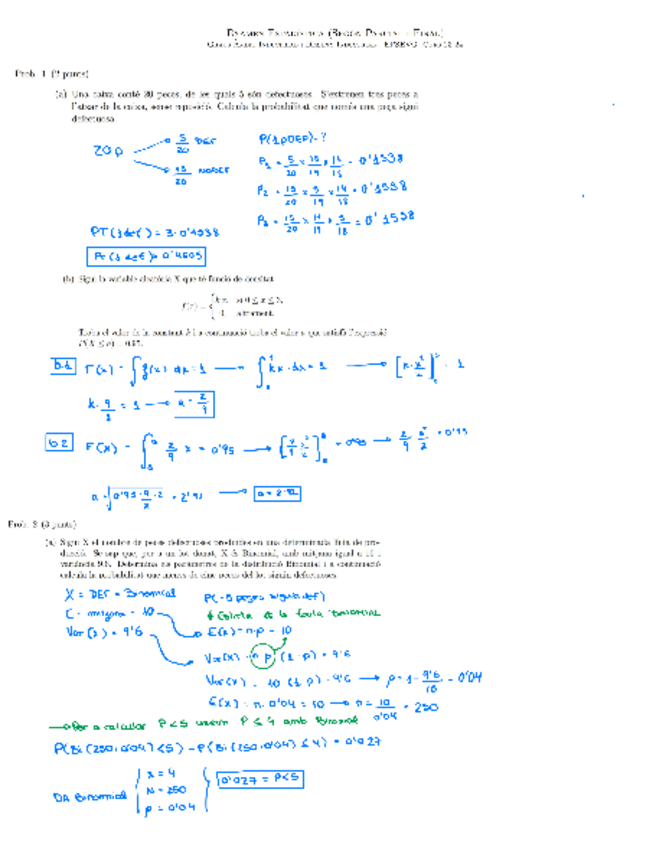 EXAMEN ESTADÍSTICA (SEGON PARCIAL I FINAL)
Prob. 1 (2 punts)
(a) Una caixa conté 20 peces, de les quals 5 són defectuoses. S'extreuen tres peces a
l'atzar de la caixa, sense reposició. Calcula la probabilitat que només una peça sigui
defectuosa.
20p
5/20 DEF
15/20 NODEF
P(1pDEF)=?
P1 = 5/20 x 15/19 x 14/18 = 0'1538
P2 = 15/20 x 5/19 x 14/18 = 0'1538
P3 = 15/20 x 14/19 x 5/18 = 0'1538
PT(1def) = 3·0'1538
(b) Sigui la variable aleatòria X que té funció de densitat
Troba el valor de la constant k i a continuació troba el valor a que satisfà l'expressió
P(X ≤ a) = 0.95.
b.1
b.2
a = 2.92
Prob. 2 (3 punts)
(a) Sigui X el nombre de peces defectuoses produïdes en una determinada línia de pro-
ducció. Se sap que, per a un lot donat, X és Binomial, amb mitjana igual a 10 i
variància 9.6. Determina els paràmetres de la distribució Binomial i a continuació
calcula la probabilitat que menys de cinc peces del lot siguin defectuoses.
X = DEF = Binomial
mitjana = 10
Var(x) = 9'6
E(x) = n·p = 10
Var(x) = n·p·(1-p) = 9'6
Var(x) = 10 (1-p) = 9'6 → p = 1 - 9'6/10 = 0'04
E(x) = n·0'04 = 10 → n = 10/0'04 = 250
→ Per a calcular P<5 usarem P≤4 amb Binomial
P(Bi(250,0'04)<5) = P(Bi(250,0'04)≤4) = 0'027
DA Binomial
x = 4
N = 250
p = 0'04
0'027 = P<5